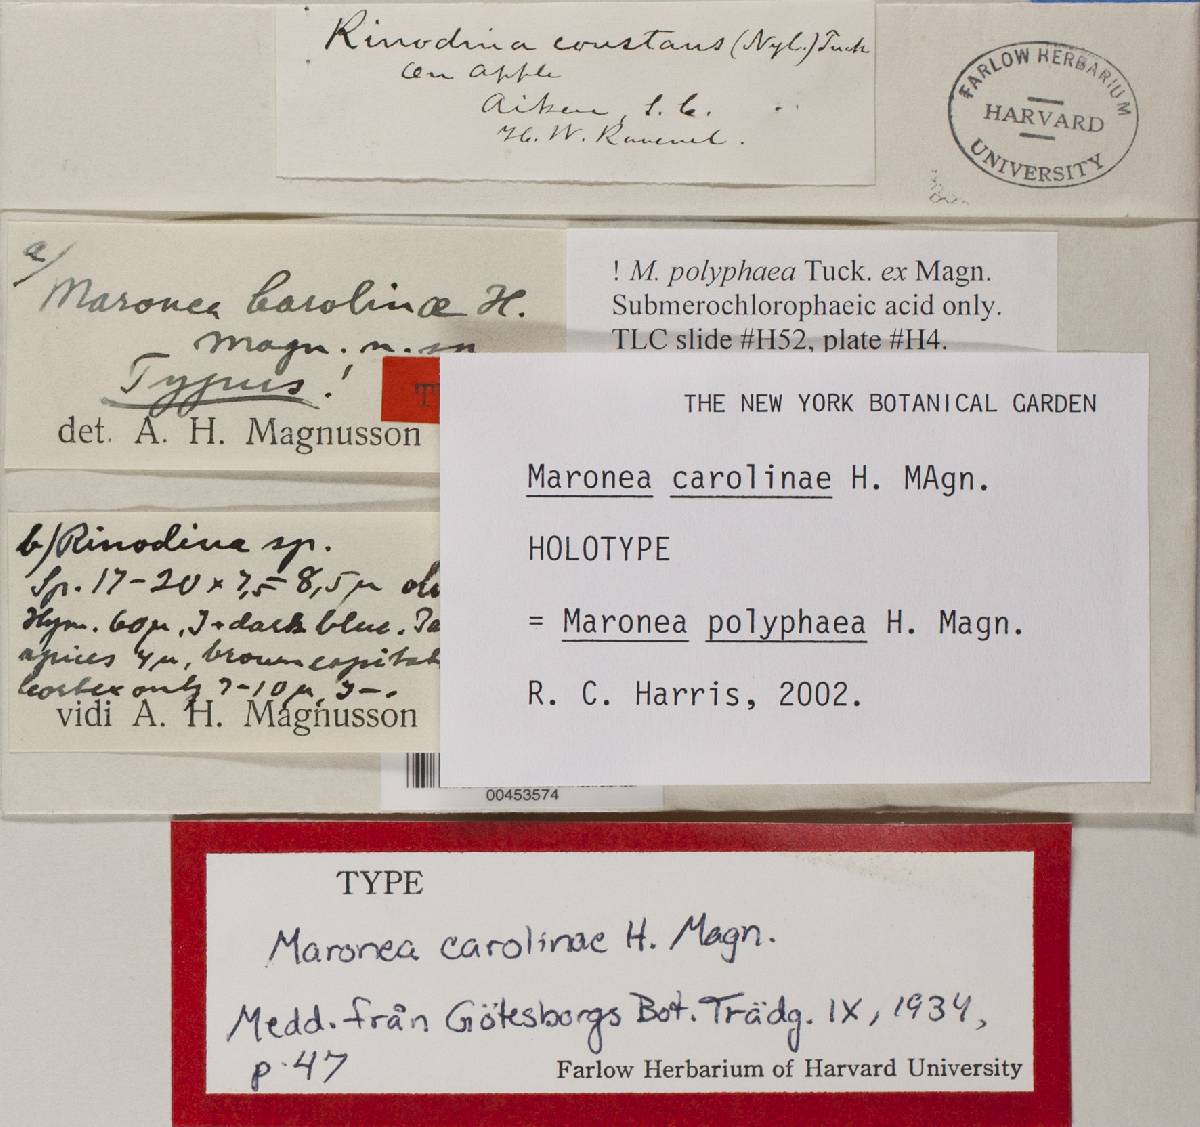 Rinodina constans (Nyl.) Tuck
On Apple
Aiken, S. C.
H. W. Ravenel.
FARLOW HERBARIUM
HARVARD
UNIVERSITY
a/
Maronea Carolinæ H.
Magn. n. sp
Typus!
T
det. A. H. Magnusson
! M. polyphaea Tuck. ex Magn.
Submerochlorophaeic acid only.
TLC slide #H52, plate #H4.
THE NEW YORK BOTANICAL GARDEN
Maronea carolinae H. MAgn.
HOLOTYPE
= Maronea polyphaea H. Magn.
R. C. Harris, 2002.
b/ Rinodina sp.
Sp. 17-20 x 7,5-8,5µ
Hym. 60µ, J+dark blue.
apices 4µ, brown capitat
Cortex only 7-10µ, J-.
vidi A. H. Magnusson
00453574
TYPE
Maronea carolinae H. Magn.
Medd. från Götesborgs Bot. Trädg. IX, 1934,
p. 47
Farlow Herbarium of Harvard University